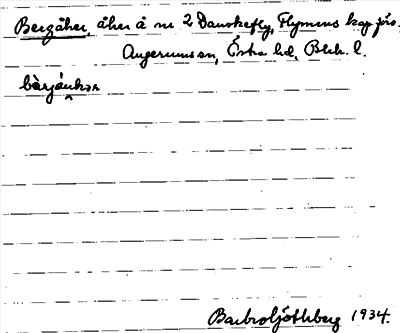 Bergåker, åker å nr 2 Danskefly, Flymens kap förs.
Augerums sn, Östra hd, Blek. l.
bàrjåukər
Barbro Ljóthberg 1934.